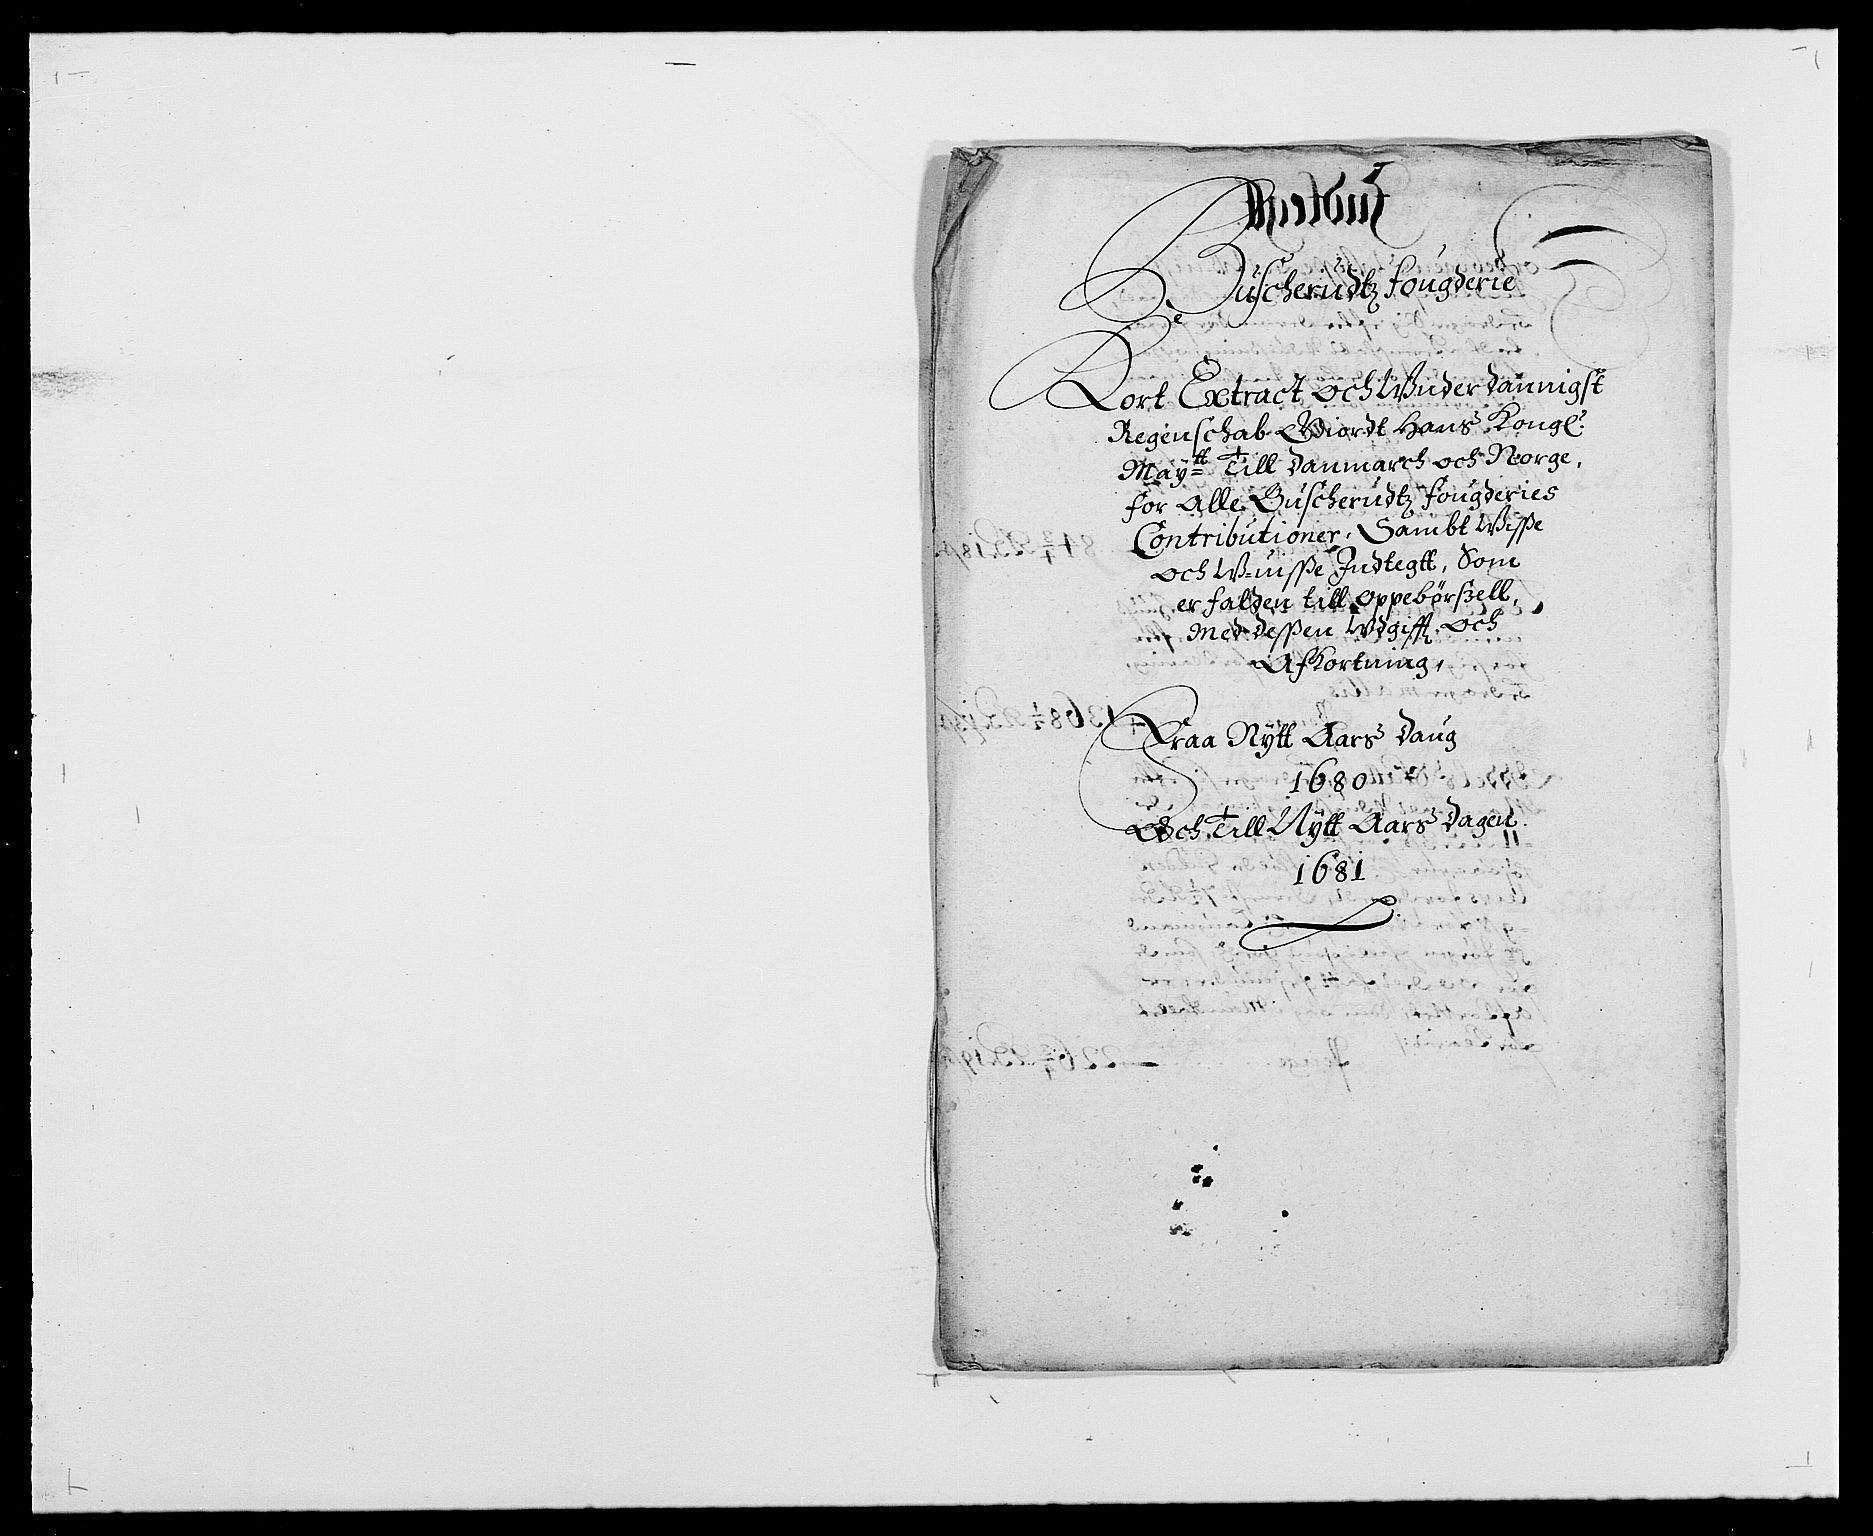 Buscherudtz fougderie
Kort Extract och Wnderdannigst
Regenschab Giordt Hans Kongl:
Maytt Till Danmarch och Norge,
for alle Buscherudtz fougderies
Contributioner, Sambt Wisse
och W-uisse Indtegtt, Som
er falden till oppebörszell,
med dessen Wdgifft och
Afkortning,
Fraa Nytt Aars daug
1680
Och Till Nytt Aars dagen
1681